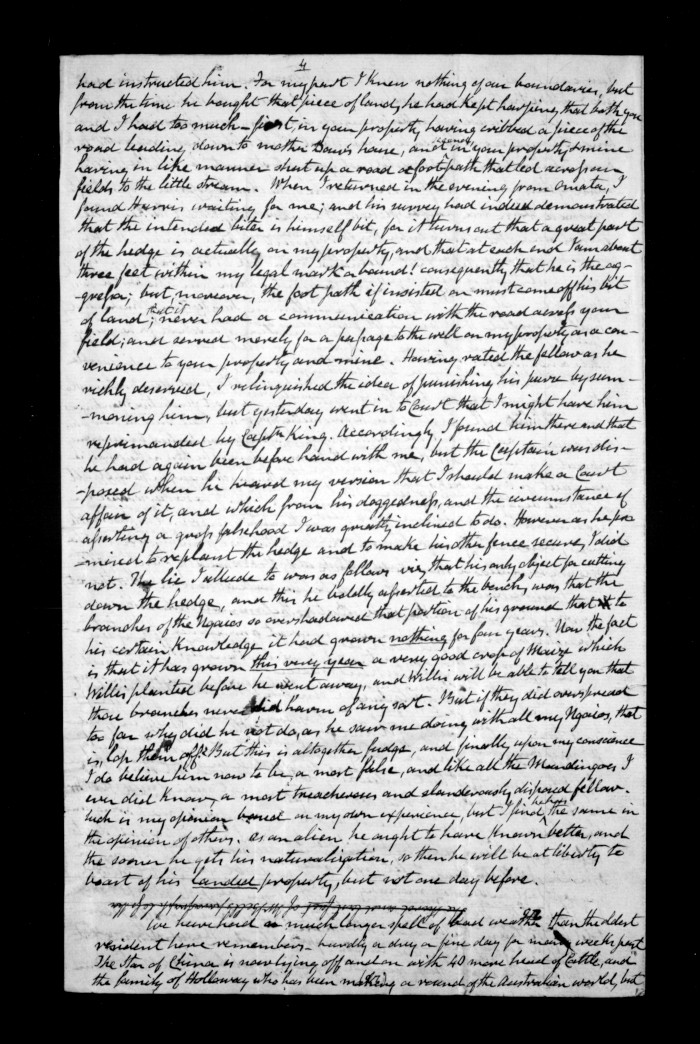 4
had instructed him. For my part I knew nothing of our boundaries, but
from the time he bought that piece of land, he had kept harping, that both you
and I had too much – first, in your property having cribbed a piece of the
road leading down to mother Daw's house, and in your property & mine
having in like manner shut up a road or foot path that led across our
fields to the little stream. When I returned in the evening from Omata, I
found Harris waiting for me; and his survey had indeed demonstrated
that the intended biter is himself bit, for it turns out that a great part
of the hedge is actually on my property, and that at each end I am about
three feet within my legal mark or bound! consequently that he is the ag-
gressor; but moreover, the foot path if insisted on must come off his bit
of land; that it never had a communication with the road across your
field; and served merely for a passage to the well on my property as a con-
venience to your property and mine. Having rated the fellow as he
richly deserved, I relinquished the idea of punishing his purse by sum-
-moning him, but yesterday went in to Court that I might have him
reprimanded by Captn King. Accordingly I found him there and that
he had again been before hand with me, but the Captain was dis-
-posed when he heard my version that I should make a Court
affair of it, and which from his doggedness, and the circumstance of
asserting a gross falsehood I was greatly inclined to do. However as he pro
-mised to replant the hedge and to make his other fence secure, I did
not. The lie I allude to was as follows viz, that his only object for cutting
down the hedge, and this he boldly asserted to the bench, was that the
branches of the Ngaios so overshadowed that portion of his ground that to
his certain knowledge it had grown nothing for four years. Now the fact
is that it has grown this very year a very good crop of Maize which
Willis planted before he went away, and Willis will be able to tell you that
those branches never did harm of any sort. But if they did overspread
too far why did he not do, as he saw me doing with all my Ngaios, that
is, lop them off? But this is altogether fudge, and finally upon my conscience
I do believe him now to be, a most false, and like all the Mandingoes I
ever did know, a most treacherous and slanderously disposed fellow.
Such is my opinion based on my own experience, but I find he has the same in
the opinion of others. As an alien he ought to have known better, and
the sooner he gets his naturalization, so then he will be at liberty to
boast of his landed property, but not one day before.
We have had a much longer spell of bad weather than the oldest
resident here remembers – hardly a day or fine day for many weeks past
The Star of China is now lying off and on with 40 more head of Cattle, and
the family of Holloway who has been making a round of the Australian world, but